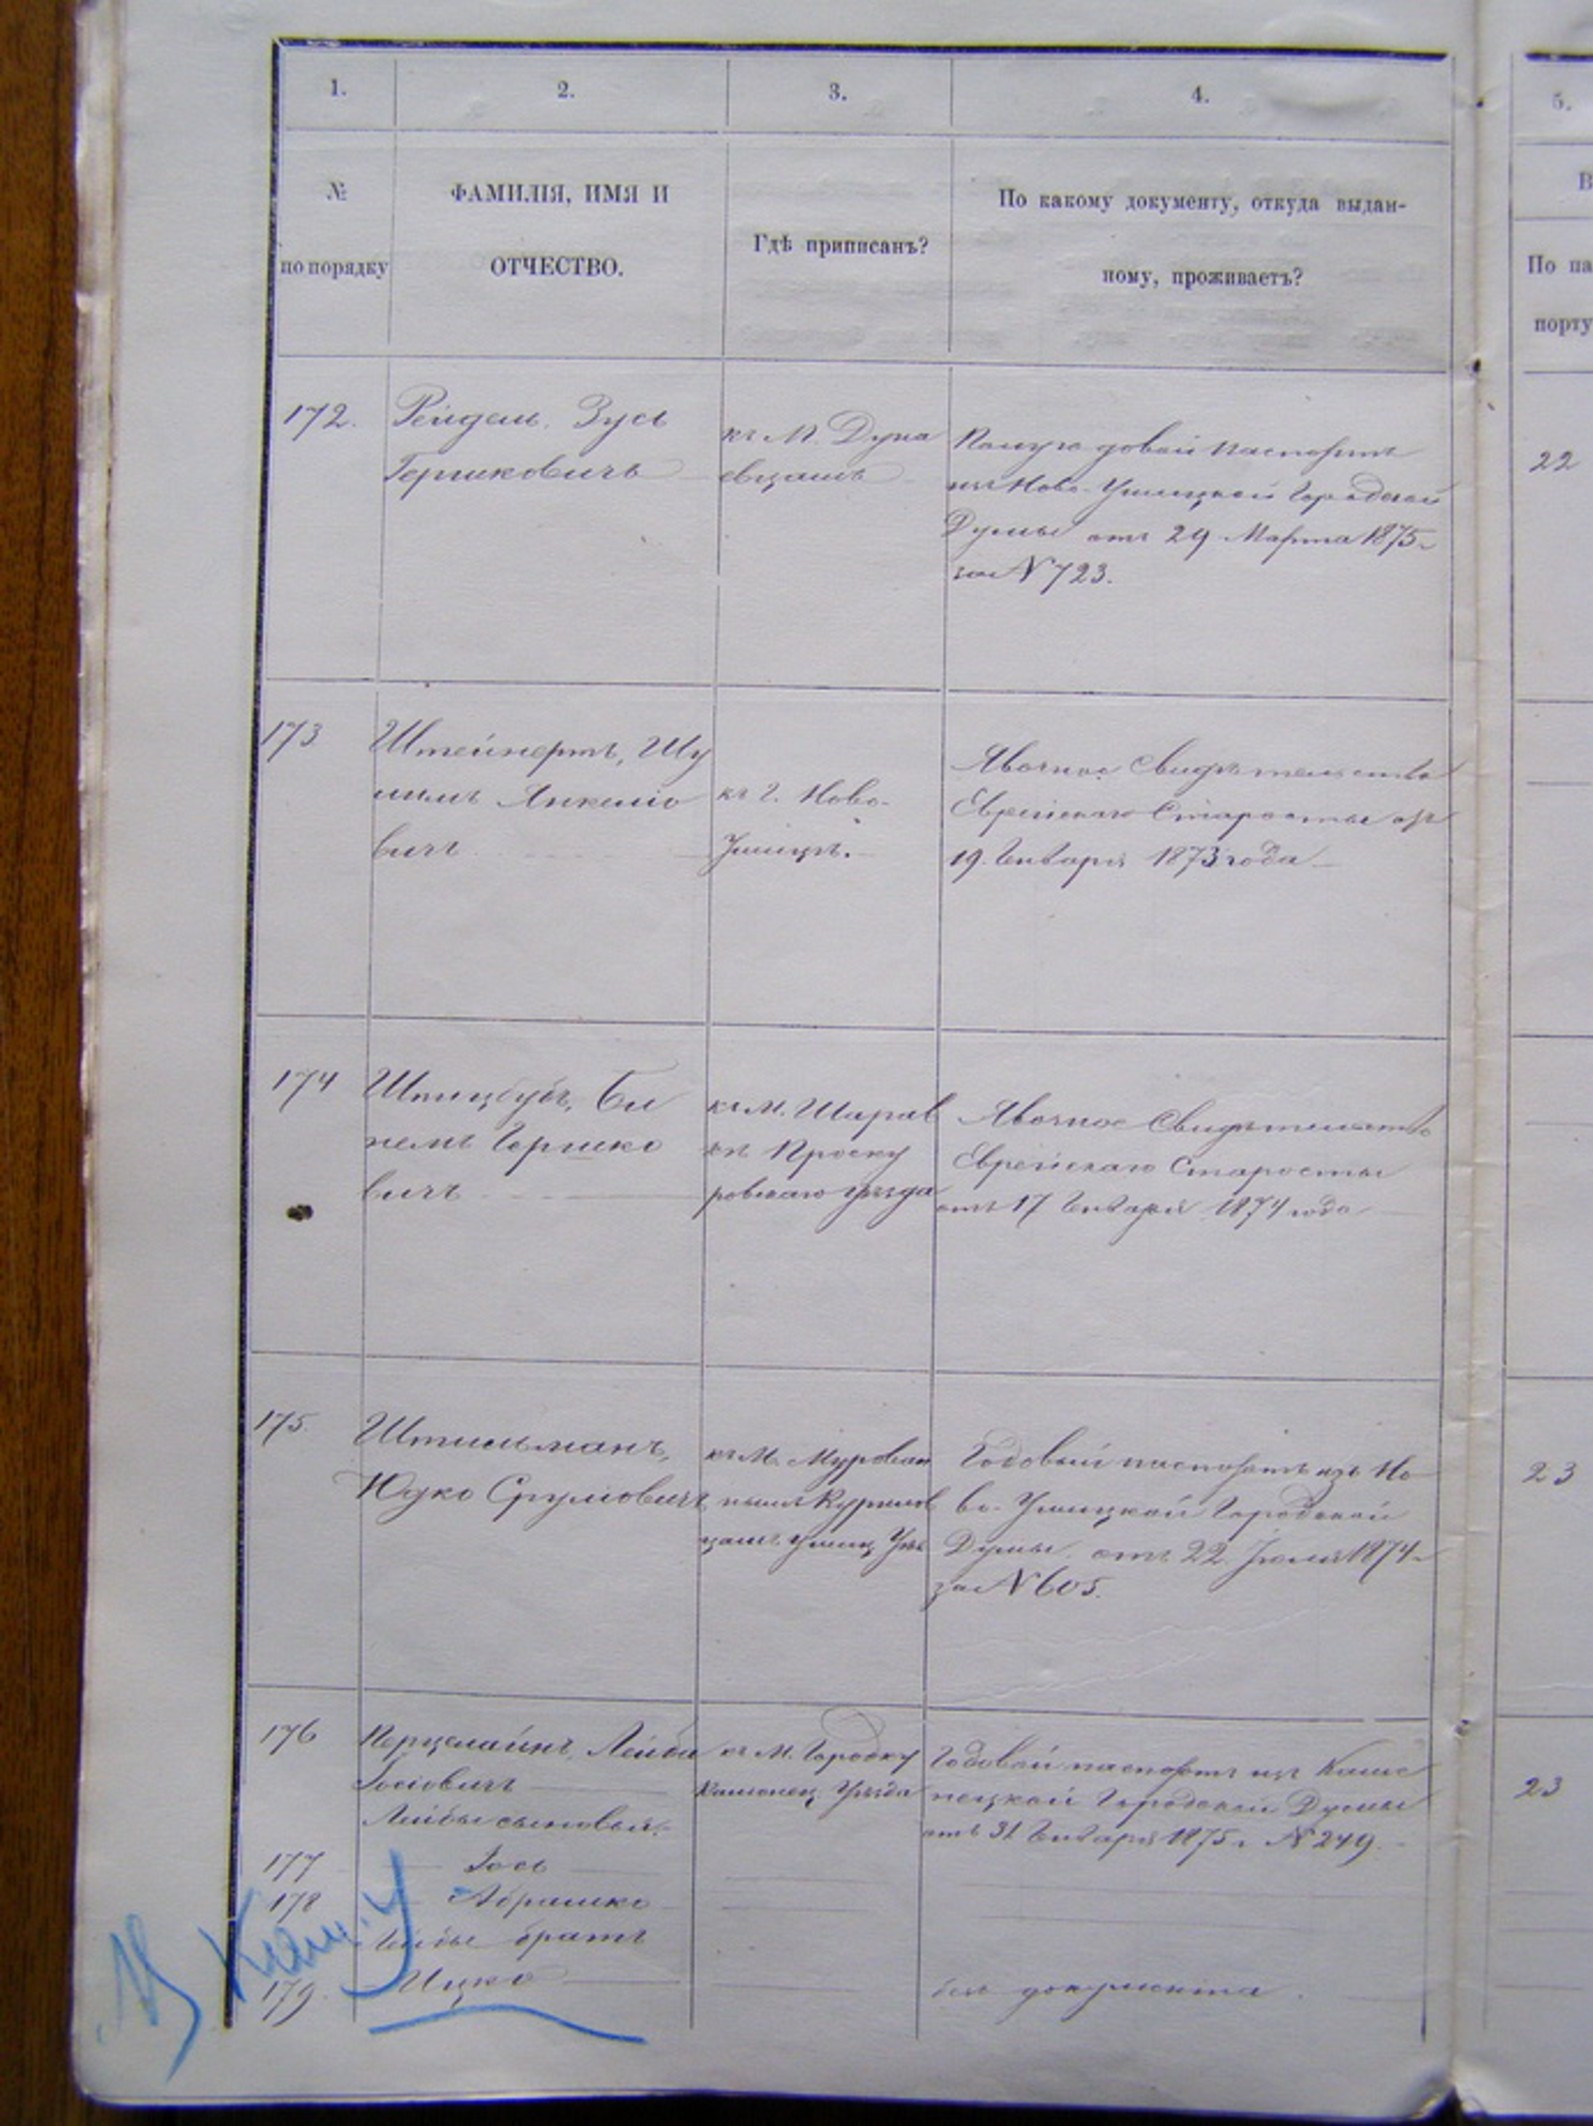 1.
2.
3.
4.
5.
№
по порядку
ФАМИЛІЯ, ИМЯ И
ОТЧЕСТВО.
Гдѣ приписанъ?
По какому документу, откуда выдан-
ному, проживаетъ?
В
По па
порту
172.
Рейдель. Зусь
Гершковичъ
къ М. Дуна
евцамъ
Полугодовой паспортъ
изъ Ново-Ушицкой Городской
Думы отъ 29 Марта 1875 г.
за № 723.
22
173
Штейнертъ, Шу
лимъ Янкеліо
вичъ
къ г. Ново-
Ушицѣ.
Явочное Свидѣтельство
Еврейскаго Старосты отъ
19. Января 1873 года
174
Шпицбубъ, Би
немъ Гершко
вичъ
къ М. Шарав
кѣ Проску
ровскаго уѣзда
Явочное Свидѣтельство
Еврейскаго Старосты
отъ 17 Января 1874 года
175.
Штильманъ,
Юдко Сруліовичъ
къ М. Мурован
нымъ Курилов
цамъ Ушиц. Уѣз
Годовый паспортъ изъ Но
во-Ушицкой Городской
Думы. отъ 22. Іюля 1874 г.
за № 605.
23
176
Перцелайнъ, Лейба
Іосіовичъ
Лейбы сыновья:
къ М. Городку
Каменец. Уѣзда
Годовой паспортъ изъ Каме
нецкой Городской Думы
отъ 31 Января 1875 г. № 249.
23
177
Іось
178
Абрашко
Лейбы братъ
179.
Ицко
безъ документа.